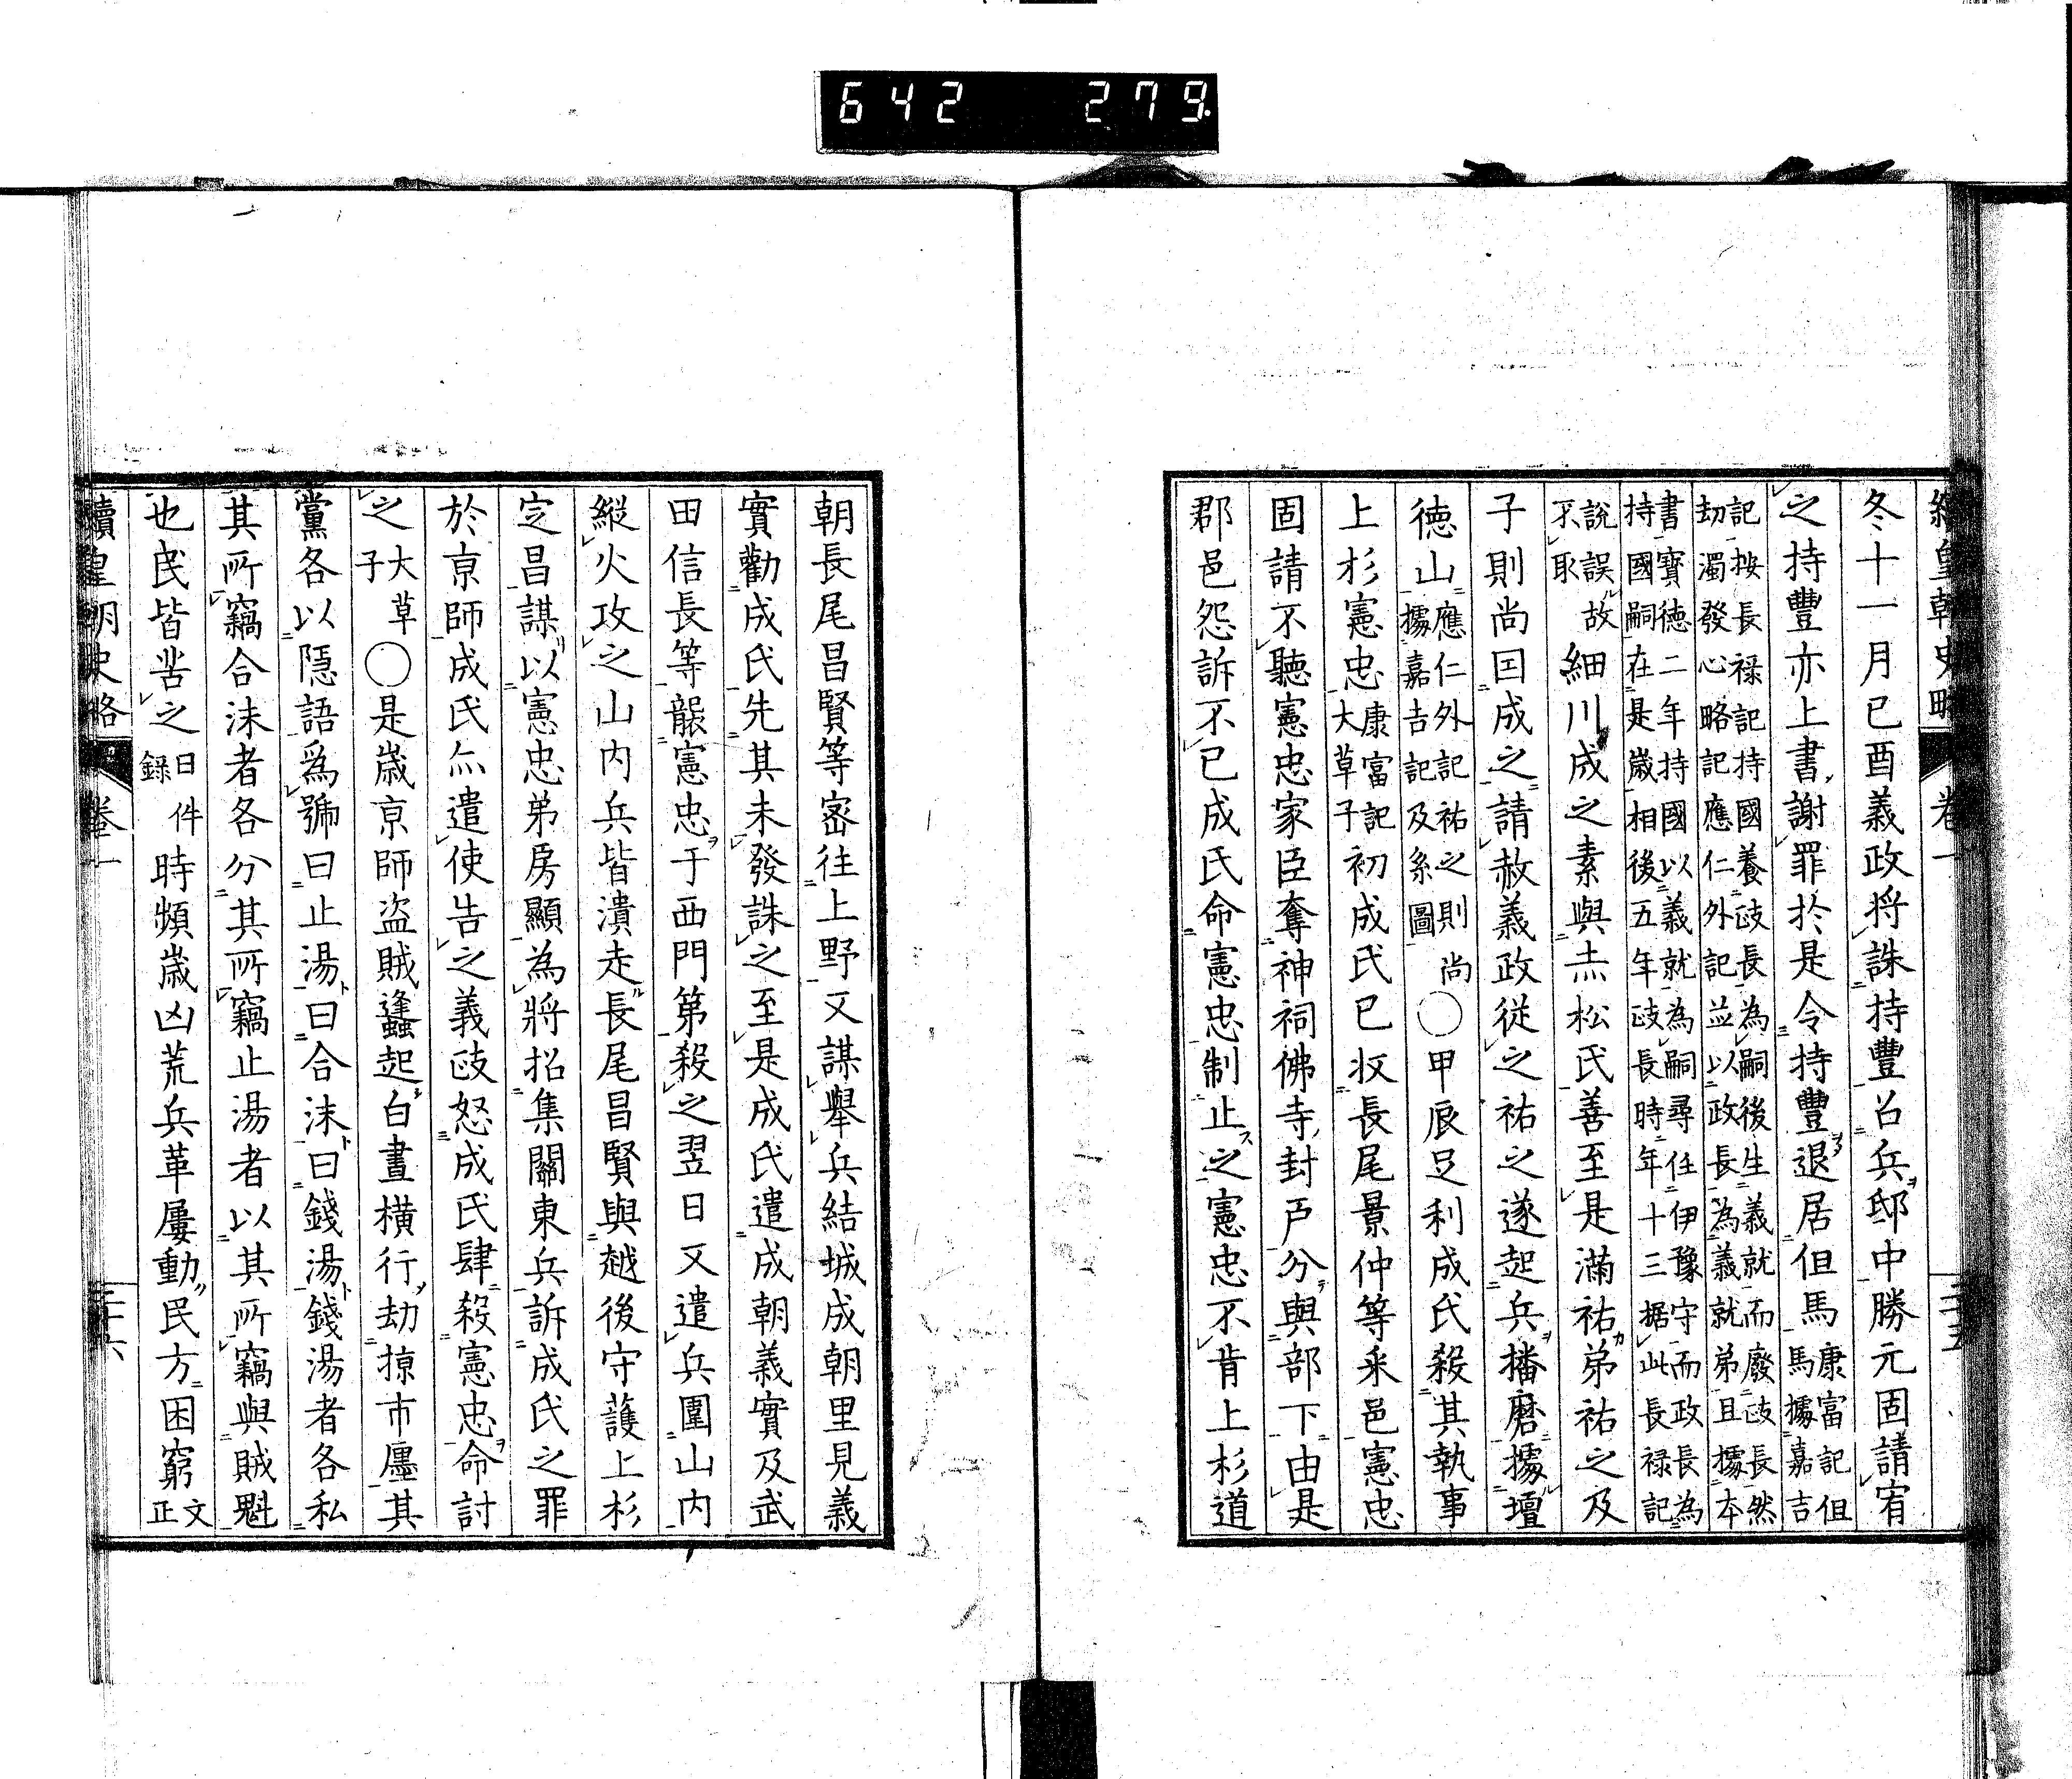 642 279
續皇朝史略 卷一 三十五
冬十一月己酉義政将誅持豐召兵邸中勝元固請宥
之持豐亦上書謝罪於是令持豐退居但馬康富記但馬據嘉吉
記按長禄記持國養政長為嗣後生義就而廢政長然
劫濁發心略記應仁外記並以政長為義就弟且據本
書寶徳二年持國以義就為嗣尋任伊豫守而政長為
持國嗣在是歳相後五年政長時年十三据此長禄記
說誤故不取細川成之素與赤松氏善至是滿祐弟祐之及
子則尚因成之請赦義政從之祐之遂起兵播磨據壇
徳山應仁外記祐之則尚據嘉吉記及系圖○甲辰足利成氏殺其執事
上杉憲忠康富記大草子初成氏已收長尾景仲等釆邑憲忠
固請不聽憲忠家臣奪神祠佛寺封戸分與部下由是
郡邑怨訴不已成氏命憲忠制止之憲忠不肯上杉道
朝長尾昌賢等密往上野又謀舉兵結城成朝里見義
實勸成氏先其未發誅之至是成氏遣成朝義實及武
田信長等襲憲忠于西門第殺之翌日又遣兵圍山内
縱火攻之山内兵皆潰走長尾昌賢與越後守護上杉
定昌謀以憲忠弟房顯為將招集關東兵訴成氏之罪
於京師成氏亦遣使告之義政怒成氏肆殺憲忠命討
之大草子○是歳京師盜賊蠭起白晝横行劫掠市廛其
黨各以隱語爲號曰止湯曰合沫曰錢湯錢湯者各私
其所竊合沫者各分其所竊止湯者以其所竊與賊魁
也民皆苦之日件録時頻歳凶荒兵革屢動民方困窮文正
續皇朝史略 卷一 三十六